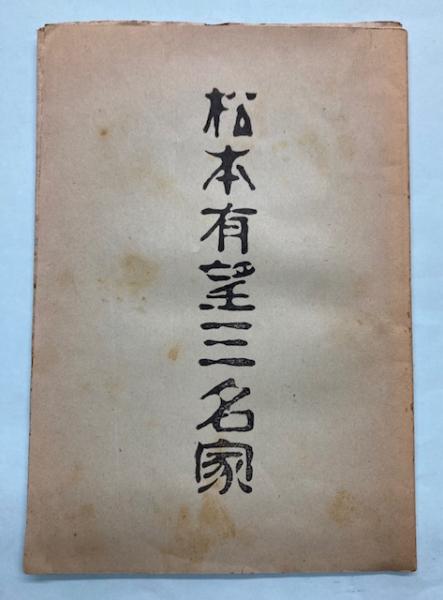 松本有望三名家